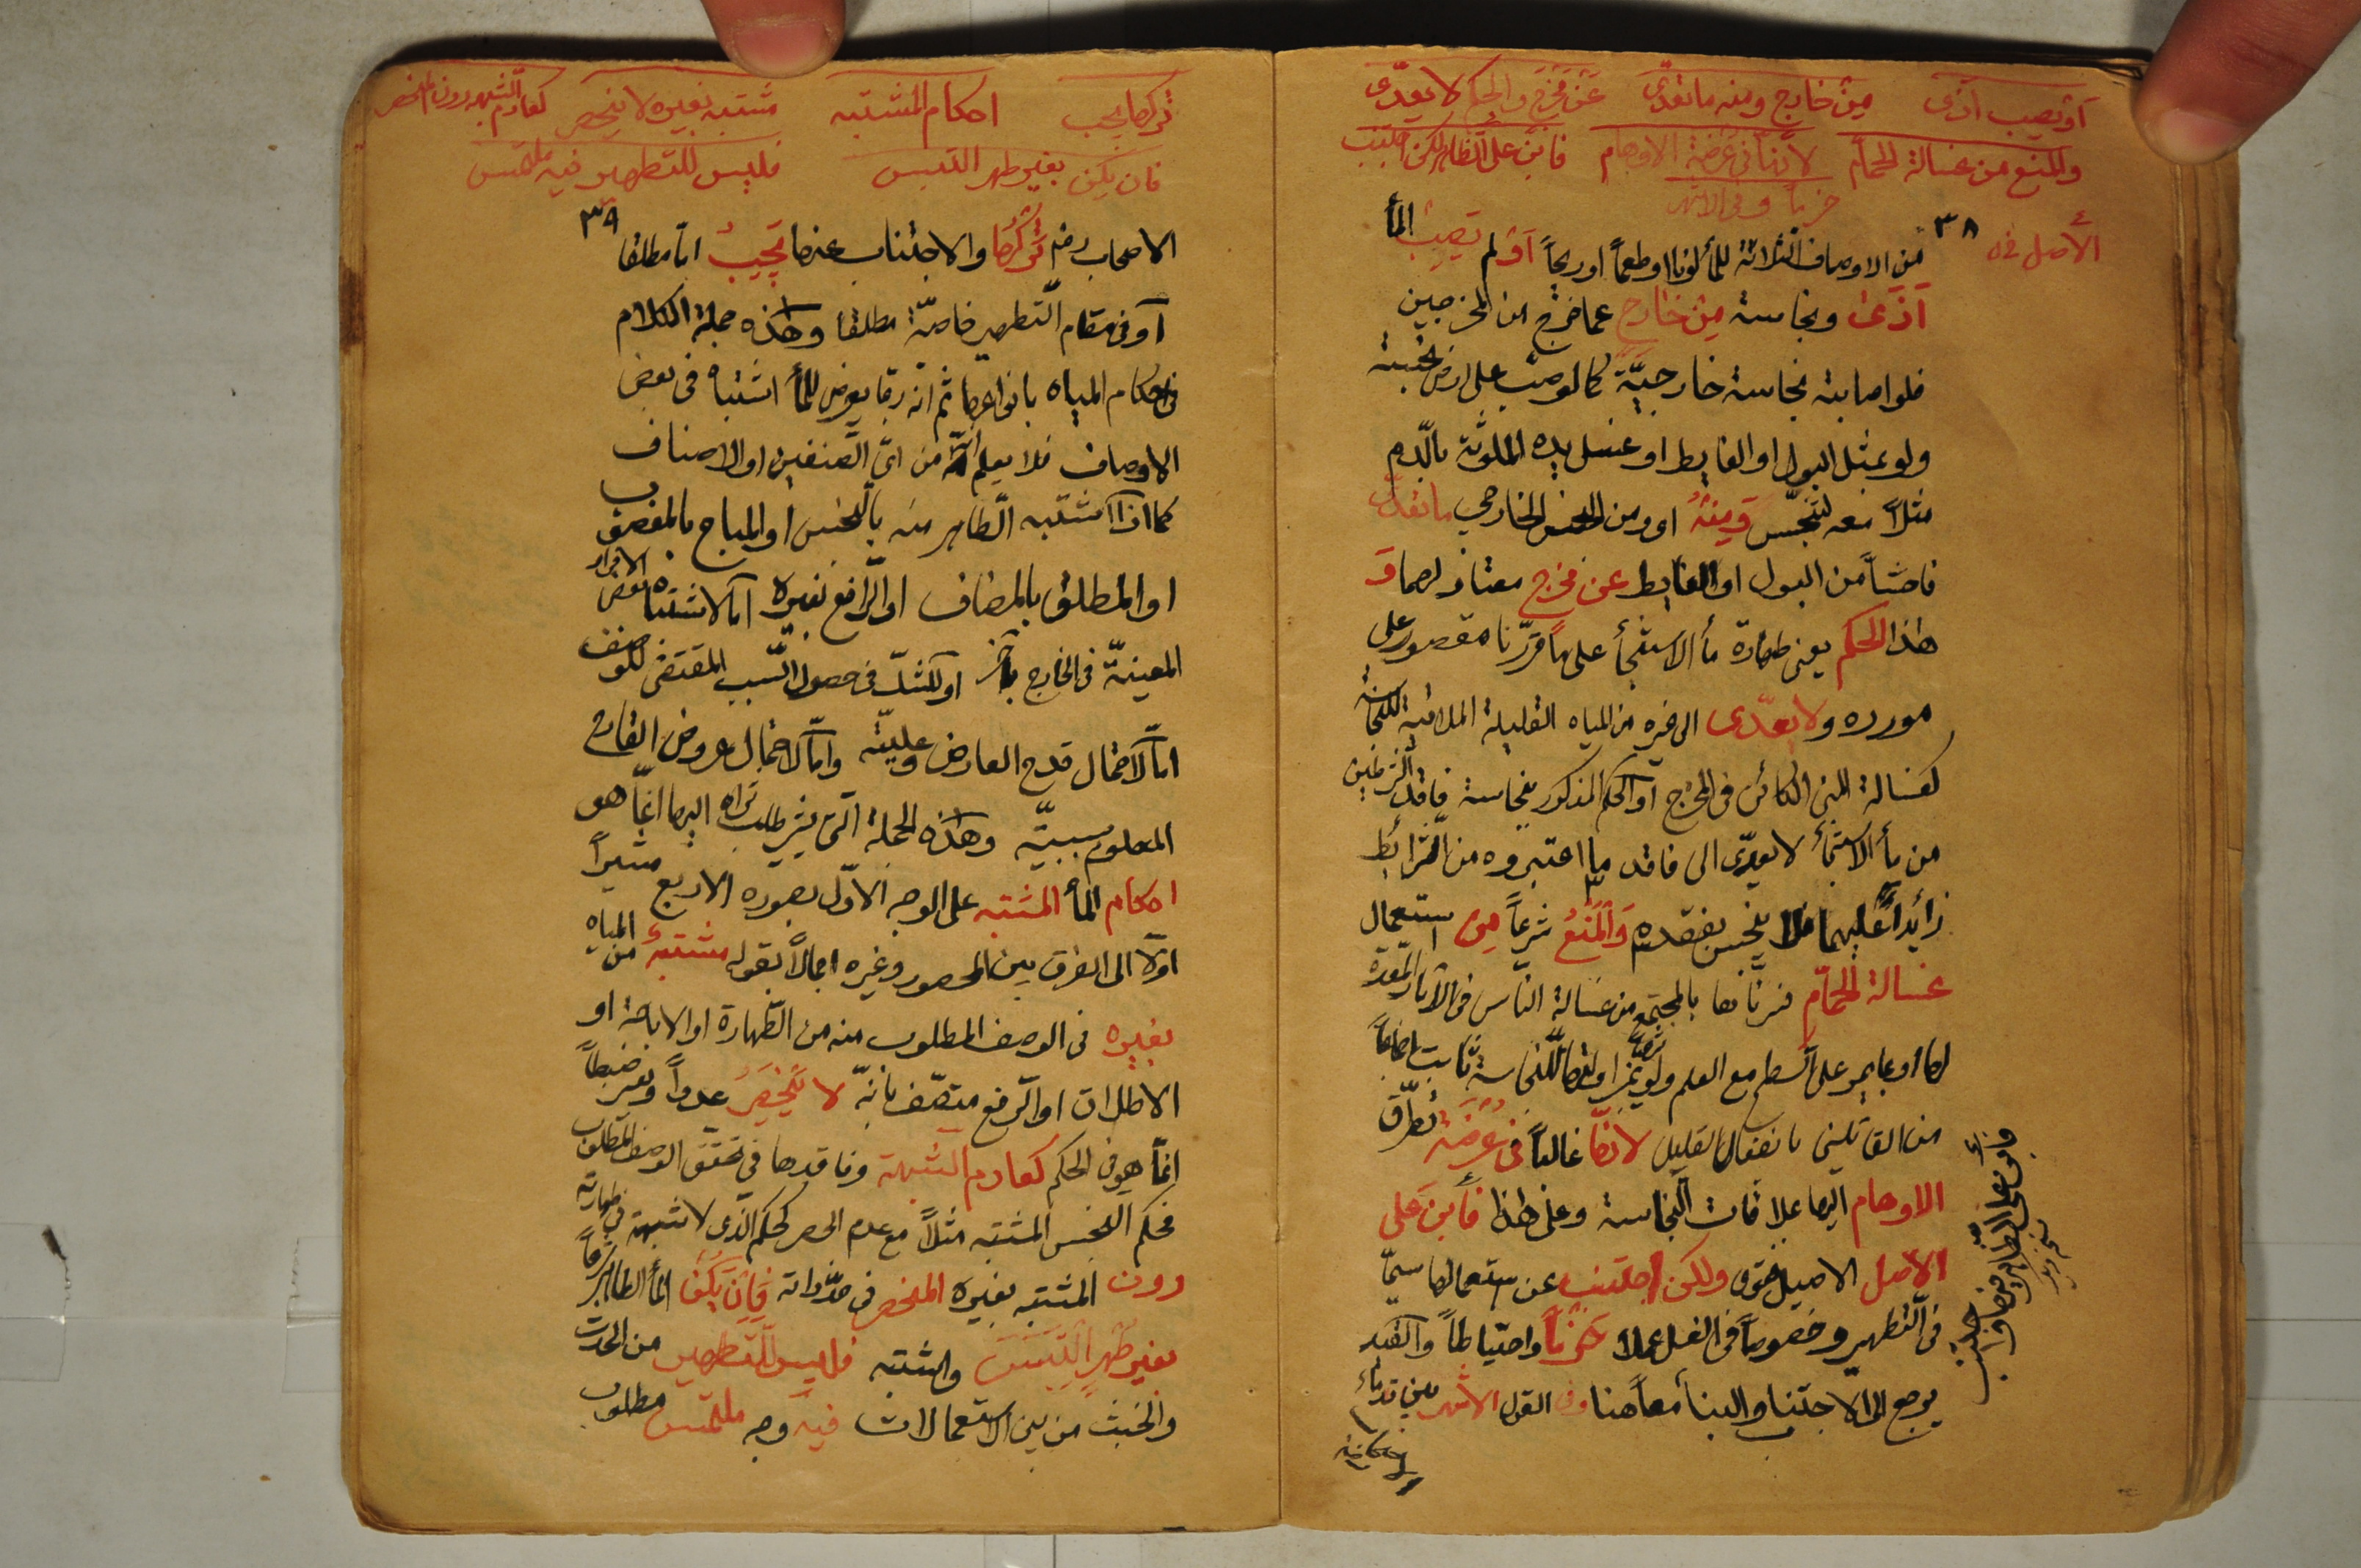 أو يصيب أذى من خارج ومنه ما تعدّى عن مخرج والحكم لا يعدّى
والمنع من غسالة الحمّام لأنّها في عرضة الأوهام فابن على الظاهر لكن اجتنب
حزماً وفي الأشهر
الأصل خ
٣٨
من الاوصاف الثلاثة للمأ لونا او طعماً او ريحاً آو لم تصب المأ
آذى ونجاسة من خارج عما خرج من المخرجين
فلو اصابته نجاسة خارجيّة كما لو صبّ على ارض نجسة
ولو بمثل البول او الغايط او غسل يده الملوّثة بالدّم
مثلاً معه لتنجّس ومنه اى ومن النجس الخارجي ما تعدّى
فاحشاً من البول او الغايط عن مخرج معتاد لهما و
هذا الحكم يعنى طهارة مأ الاستنجأ على ما قرّرنا مقصور على
مورده ولا يعدّى الى غيره من المياه القليلة الملاقية للنجاسة
كغسالة المنى الكائن فى المخرج او الحكم المذكور بنجاسة فاقد الشرطين
من مأ الاستنجأ لا يعدّى الى فاقد ما اعتبروه من الشرائط
زائداً عليهما فلا ينجس بفقده والمنع شرعاً من استعمال
غسالة الحمّام فسرناها بالمجتمع من غسالة النّاس فى الآبار المعدّة
لها او بما يجرى على السطح مع العلم ولو شرعاً بملاقاتها للنجاسة ثابت اجماعاً
من القائلين بانفعال القليل لانّها غالباً فى عرضة تطرّق
الاوهام اليها بملاقات النجاسة وعلى هذا فابن على
الاصل الاصيل القوى ولكن اجتنب عن استعمالها سيّما
فى التّطهير وخصوصاً فى الغسل عملا حزماً واحتياطاً والقيد
يرجع الى الاجتناب والبنأ معاً هنا وفى القول الاشهر بين قدماء
فابن على الظاهر حزماً واجتنب
تركها يجب احكام المشتبه مشتبه بغيره لا ينحصر كعادم الشبهه دون المنحصر
فان يكن بغير طهر التبس فليس للتطهير فيه ملتمس
٣٩
الاصحاب رض تركها والاجتناب عنها يجب امّا مطلقا
آو فى مقام التّطهير خاصّة مطلقا وهذه جملة الكلام
فى احكام المياه بانواعها ثم انّه ربّما يعرض للمأ اشتباه فى بعض
الاوصاف فلا يعلم انّه من اىّ الصّنفين او الاصناف
كما اذا اشتبه الطّاهر منه بالنّجس او المباح بالمغصوب
او المطلق بالمضاف او الرّافع بغيره امّا لاشتباه بعض الافراد
المعيّنة فى الخارج بآخر او لشكّ فى حصول السّبب المقتضى للوصف
امّا لاحتمال قدح العارض وعليّته وامّا لاحتمال عروض القادح
المعلوم سببيّة وهذه الجملة الّتى يشير طلب تراه اليها انّما هو
احكام المأ المشتبه على الوجه الاوّل بصوره الاربع مشيراً
اوّلا الى الفرق بين المحصور وغيره اجمالاً بقوله مشتبه من المياه
بغيره فى الوصف المطلوب منه من الطّهارة او الاباحة او
الاطلاق او الرّفع متصّف بانّه لا ينحصر عدداً وتعسّر ضبطاً
انّما هو فى الحكم كعادم الشبهة وفاقدها فى تحقق الوصف المطلوب
فحكم النّجس المشتبه مثلاً مع عدم الحصر كحكم الّذى لا شبهة فى طهارته
دون المشتبه بغيره المنحصر فى حدّ ذاته فان يكن المأ الطاهر شرعاً
بغير طهر التبس واشتبه فليس للتّطهير من الحدث
والخبث من بين الاستعمالات فيه وجه ملتمس مطلوب